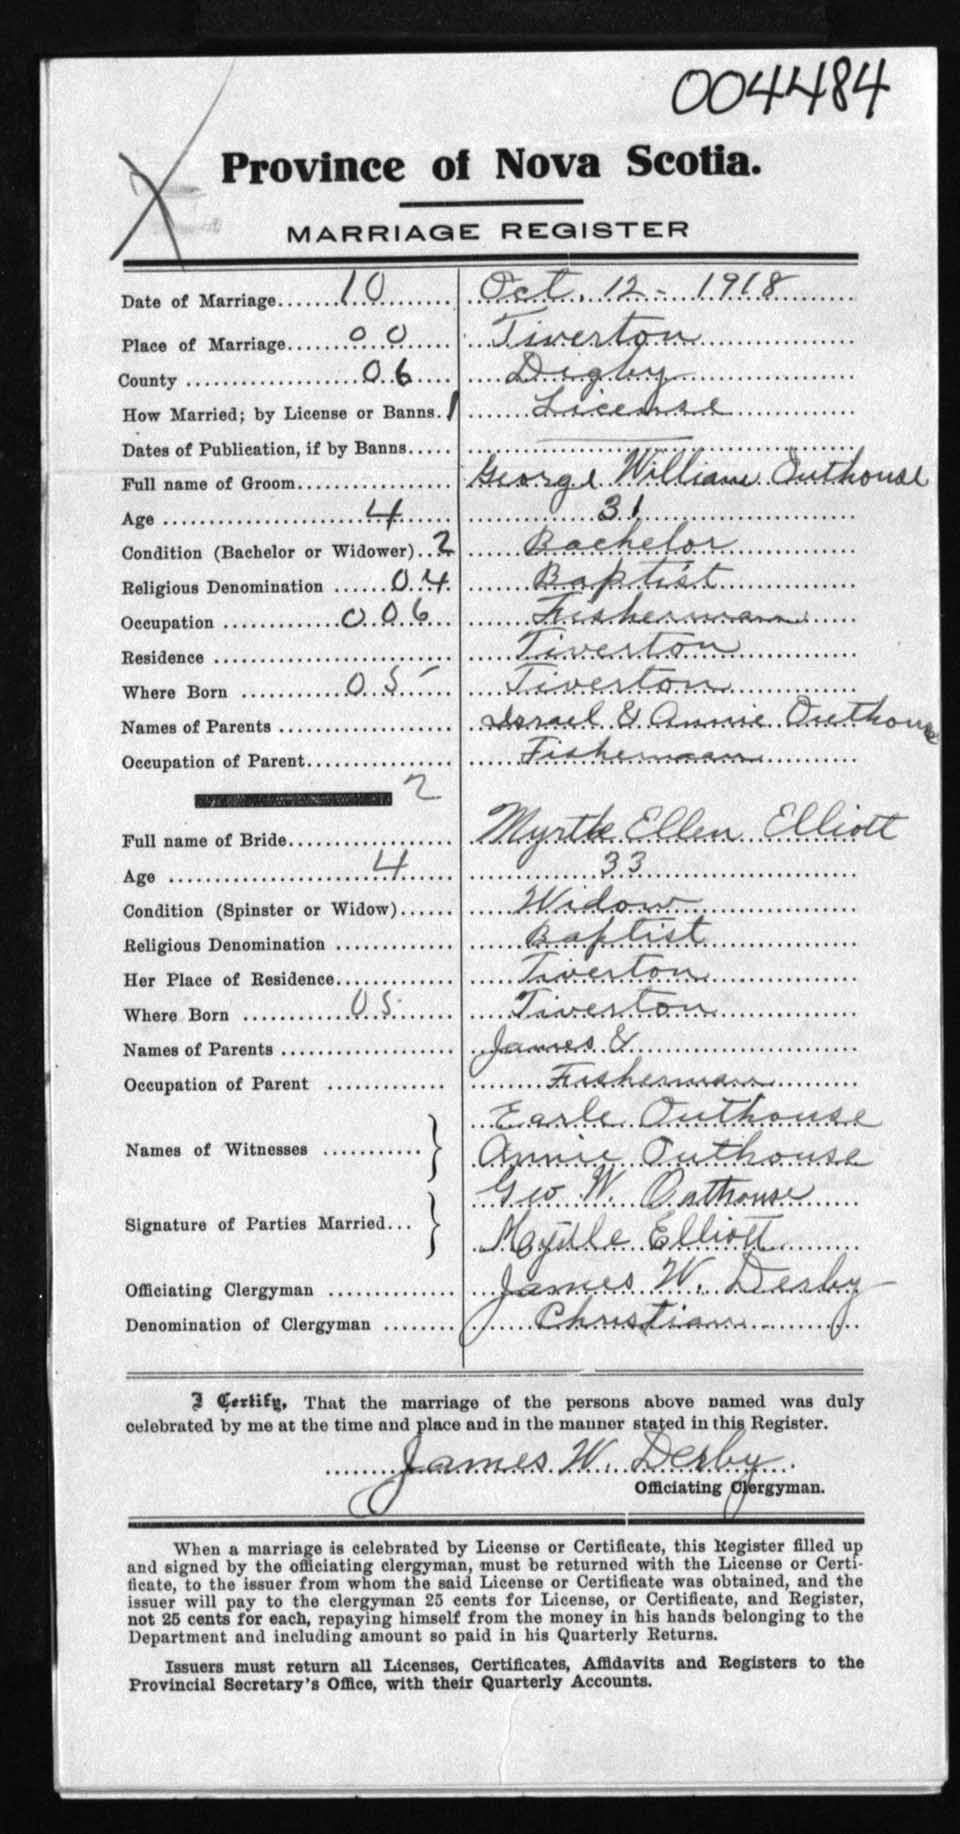 004484
Province of Nova Scotia.
MARRIAGE REGISTER
Date of Marriage.......10........ Oct. 12 - 1918
Place of Marriage...00.... Tiverton
County ................06.... Digby
How Married; by License or Banns. 1 License
Dates of Publication, if by Banns.....
Full name of Groom................ George William Outhouse
Age ....................4...... 31
Condition (Bachelor or Widower)..2 Bachelor
Religious Denomination ......04. Baptist
Occupation ............006... Fisherman
Residence .......................... Tiverton
Where Born ..........05..... Tiverton
Names of Parents .................. Israel & Annie Outhouse
Occupation of Parent................ Fisherman
2
Full name of Bride................. Myrtle Ellen Elliott
Age ....................4...... 33
Condition (Spinster or Widow)...... Widow
Religious Denomination ............ Baptist
Her Place of Residence............. Tiverton
Where Born ..........05....... Tiverton
Names of Parents ................... James &
Occupation of Parent ............. Fisherman
Earle Outhouse
Names of Witnesses ........... } Annie Outhouse
Geo W. Outhouse
Signature of Parties Married... } Myrtle Elliott
Officiating Clergyman .............. James W. Derby
Denomination of Clergyman ........ Christian
I Certify, That the marriage of the persons above named was duly
celebrated by me at the time and place and in the manner stated in this Register.
........James W. Derby.
Officiating Clergyman.
When a marriage is celebrated by License or Certificate, this Register filled up
and signed by the officiating clergyman, must be returned with the License or Certi-
ficate, to the issuer from whom the said License or Certificate was obtained, and the
issuer will pay to the clergyman 25 cents for License, or Certificate, and Register,
not 25 cents for each, repaying himself from the money in his hands belonging to the
Department and including amount so paid in his Quarterly Returns.
Issuers must return all Licenses, Certificates, Affidavits and Registers to the
Provincial Secretary's Office, with their Quarterly Accounts.